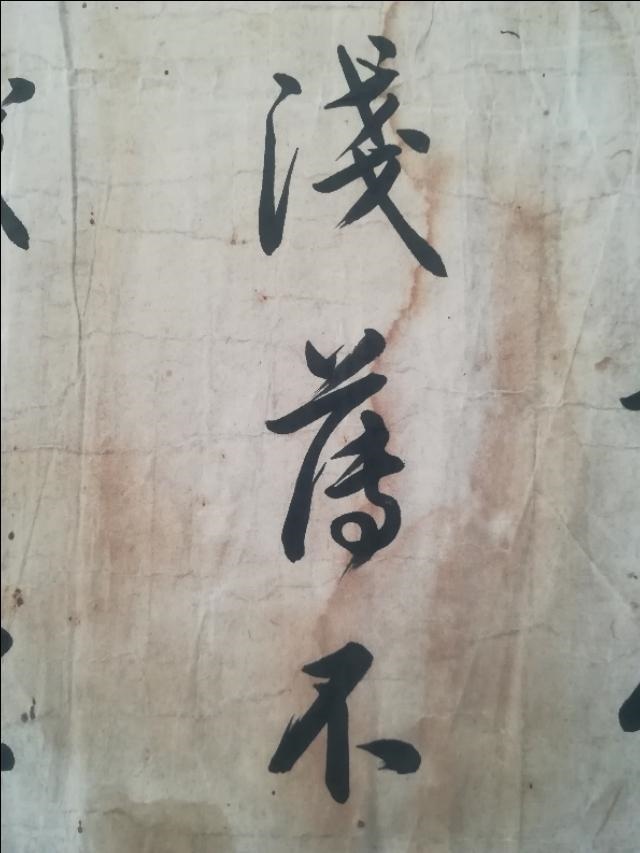 淺薄不